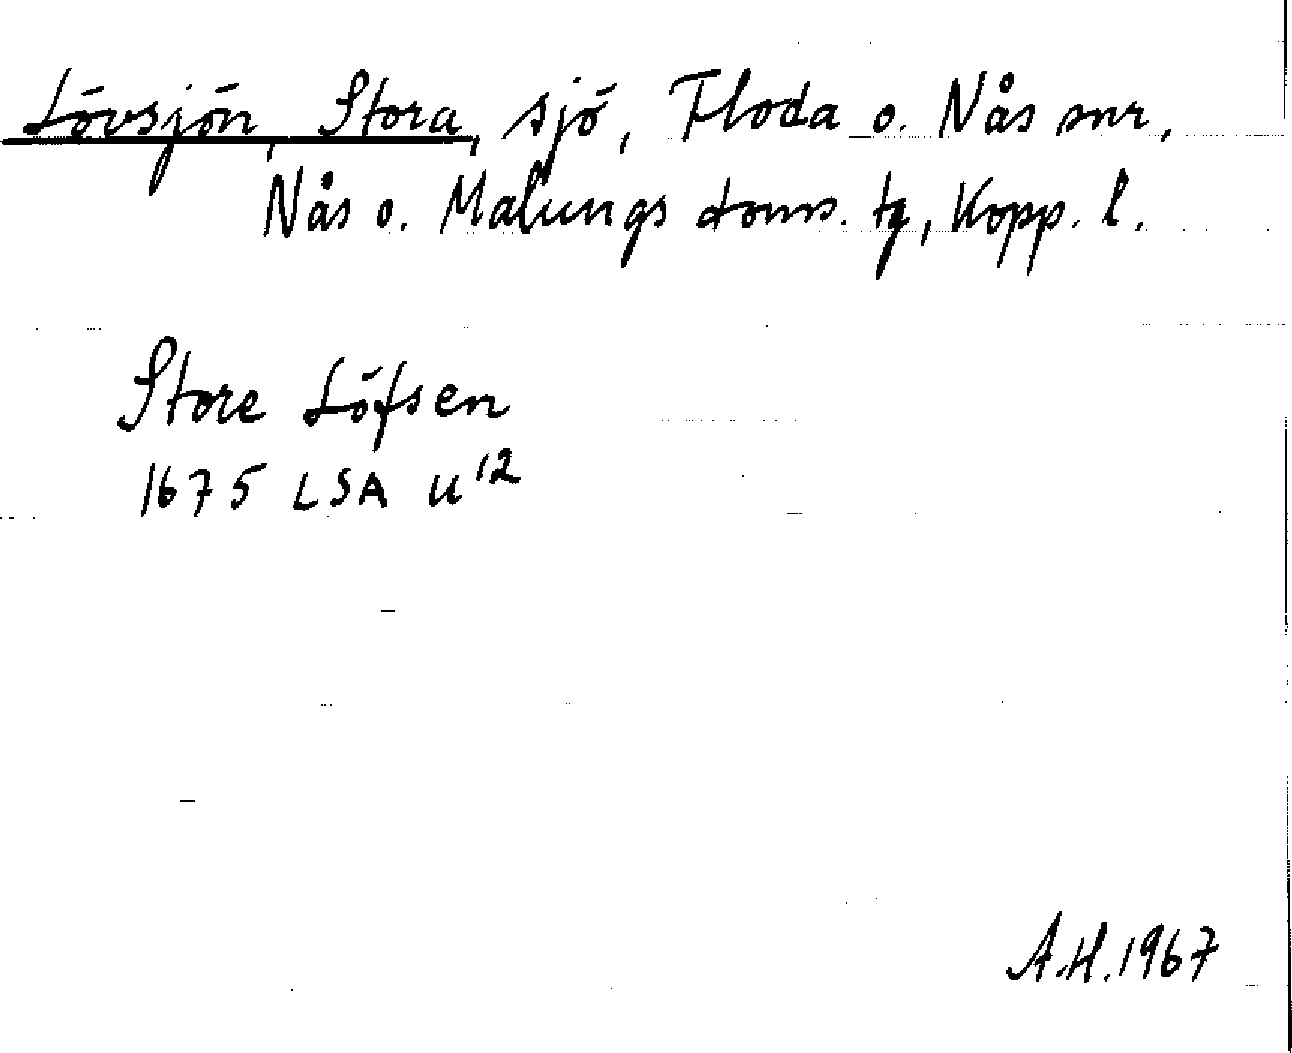 Lövsjön, Stora, sjö, Floda o. Nås snr,
Nås o. Malungs doms. tg, Kopp. l.
Store Löfsen
1675 LSA U12
A.H. 1967